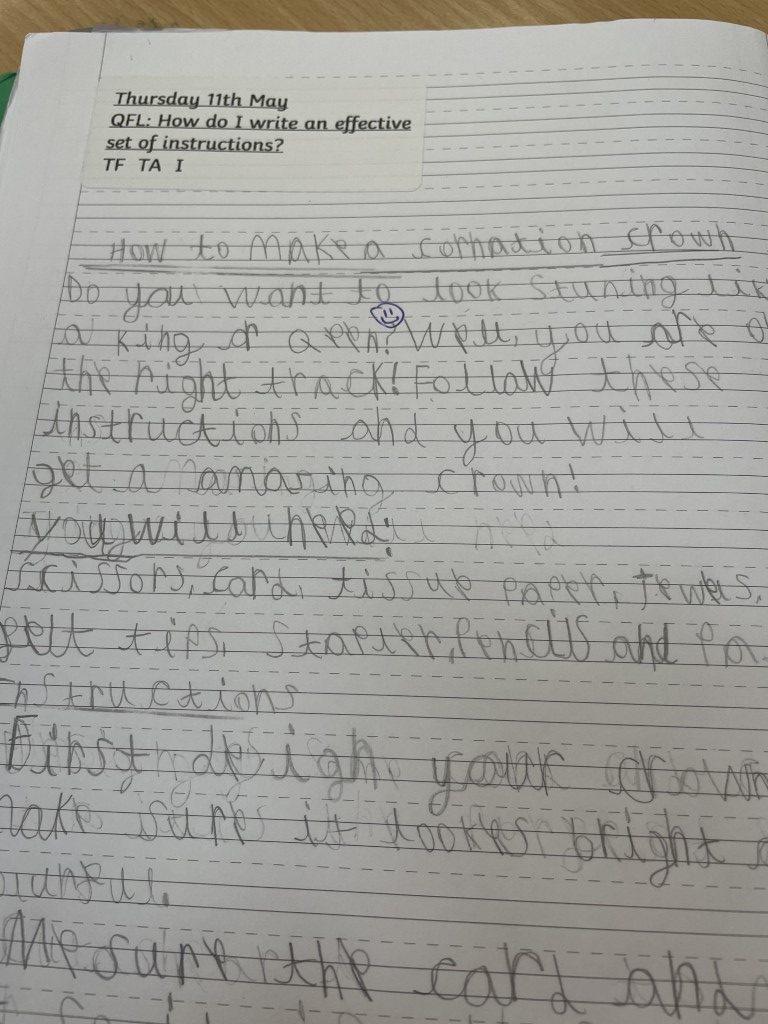 Thursday 11th May
QFL: How do I write an effective
set of instructions?
TF TA I
How to make a cornation crown
Do you want to look stuning lik
a king or Qeen? Well, you are o
the right track! Follow these
instructions and you will
get a amazing crown!
you will need:
scissors, card, tissue paper, jewels,
felt tips, stapler, pencils and pa
instructions
First, design your crown
make sure it lookes bright
Mesure the card and